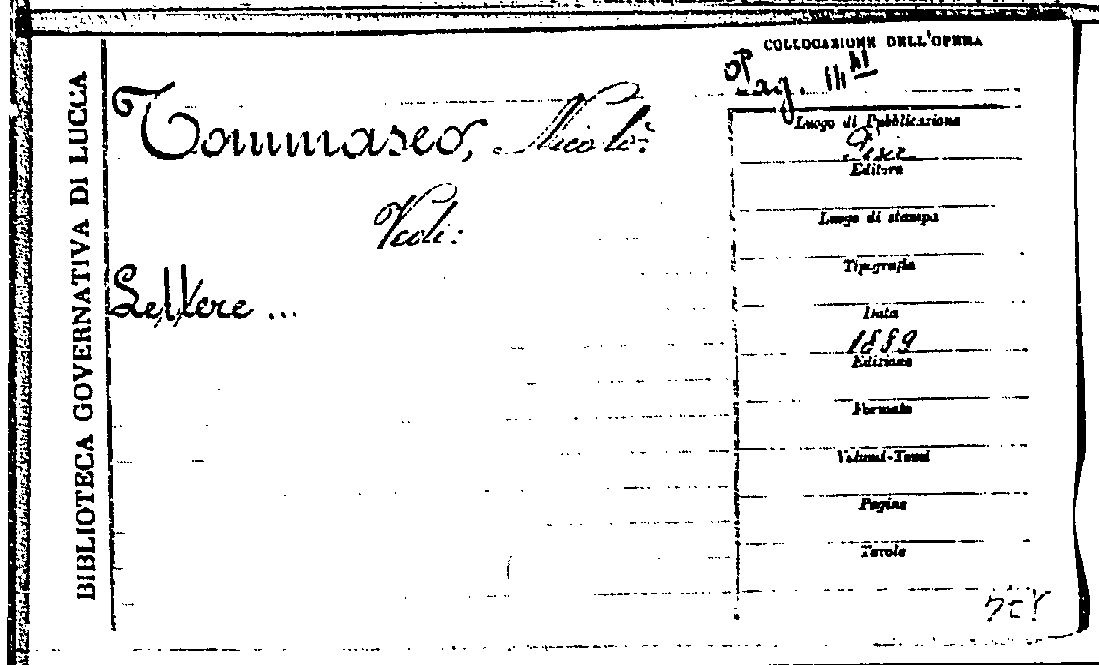 BIBLIOTECA GOVERNATIVA DI LUCCA
Tommaseo, Nicolò:
Vedi:
Lettere ...
COLLOCAZIONE DELL'OPERA
Luogo di Pubblicazione
Editore
Luogo di stampa
Tipografia
Data
1889
Edizione
Formato
Volumi-Tomi
Pagine
Tavole